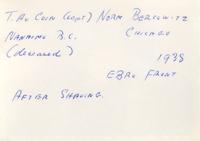 T. Au Coin (Capt) Norm Berkowitz
Nanaimo B.C. Chicago
(deceased)
1938
Ebro Front
After Shaving.